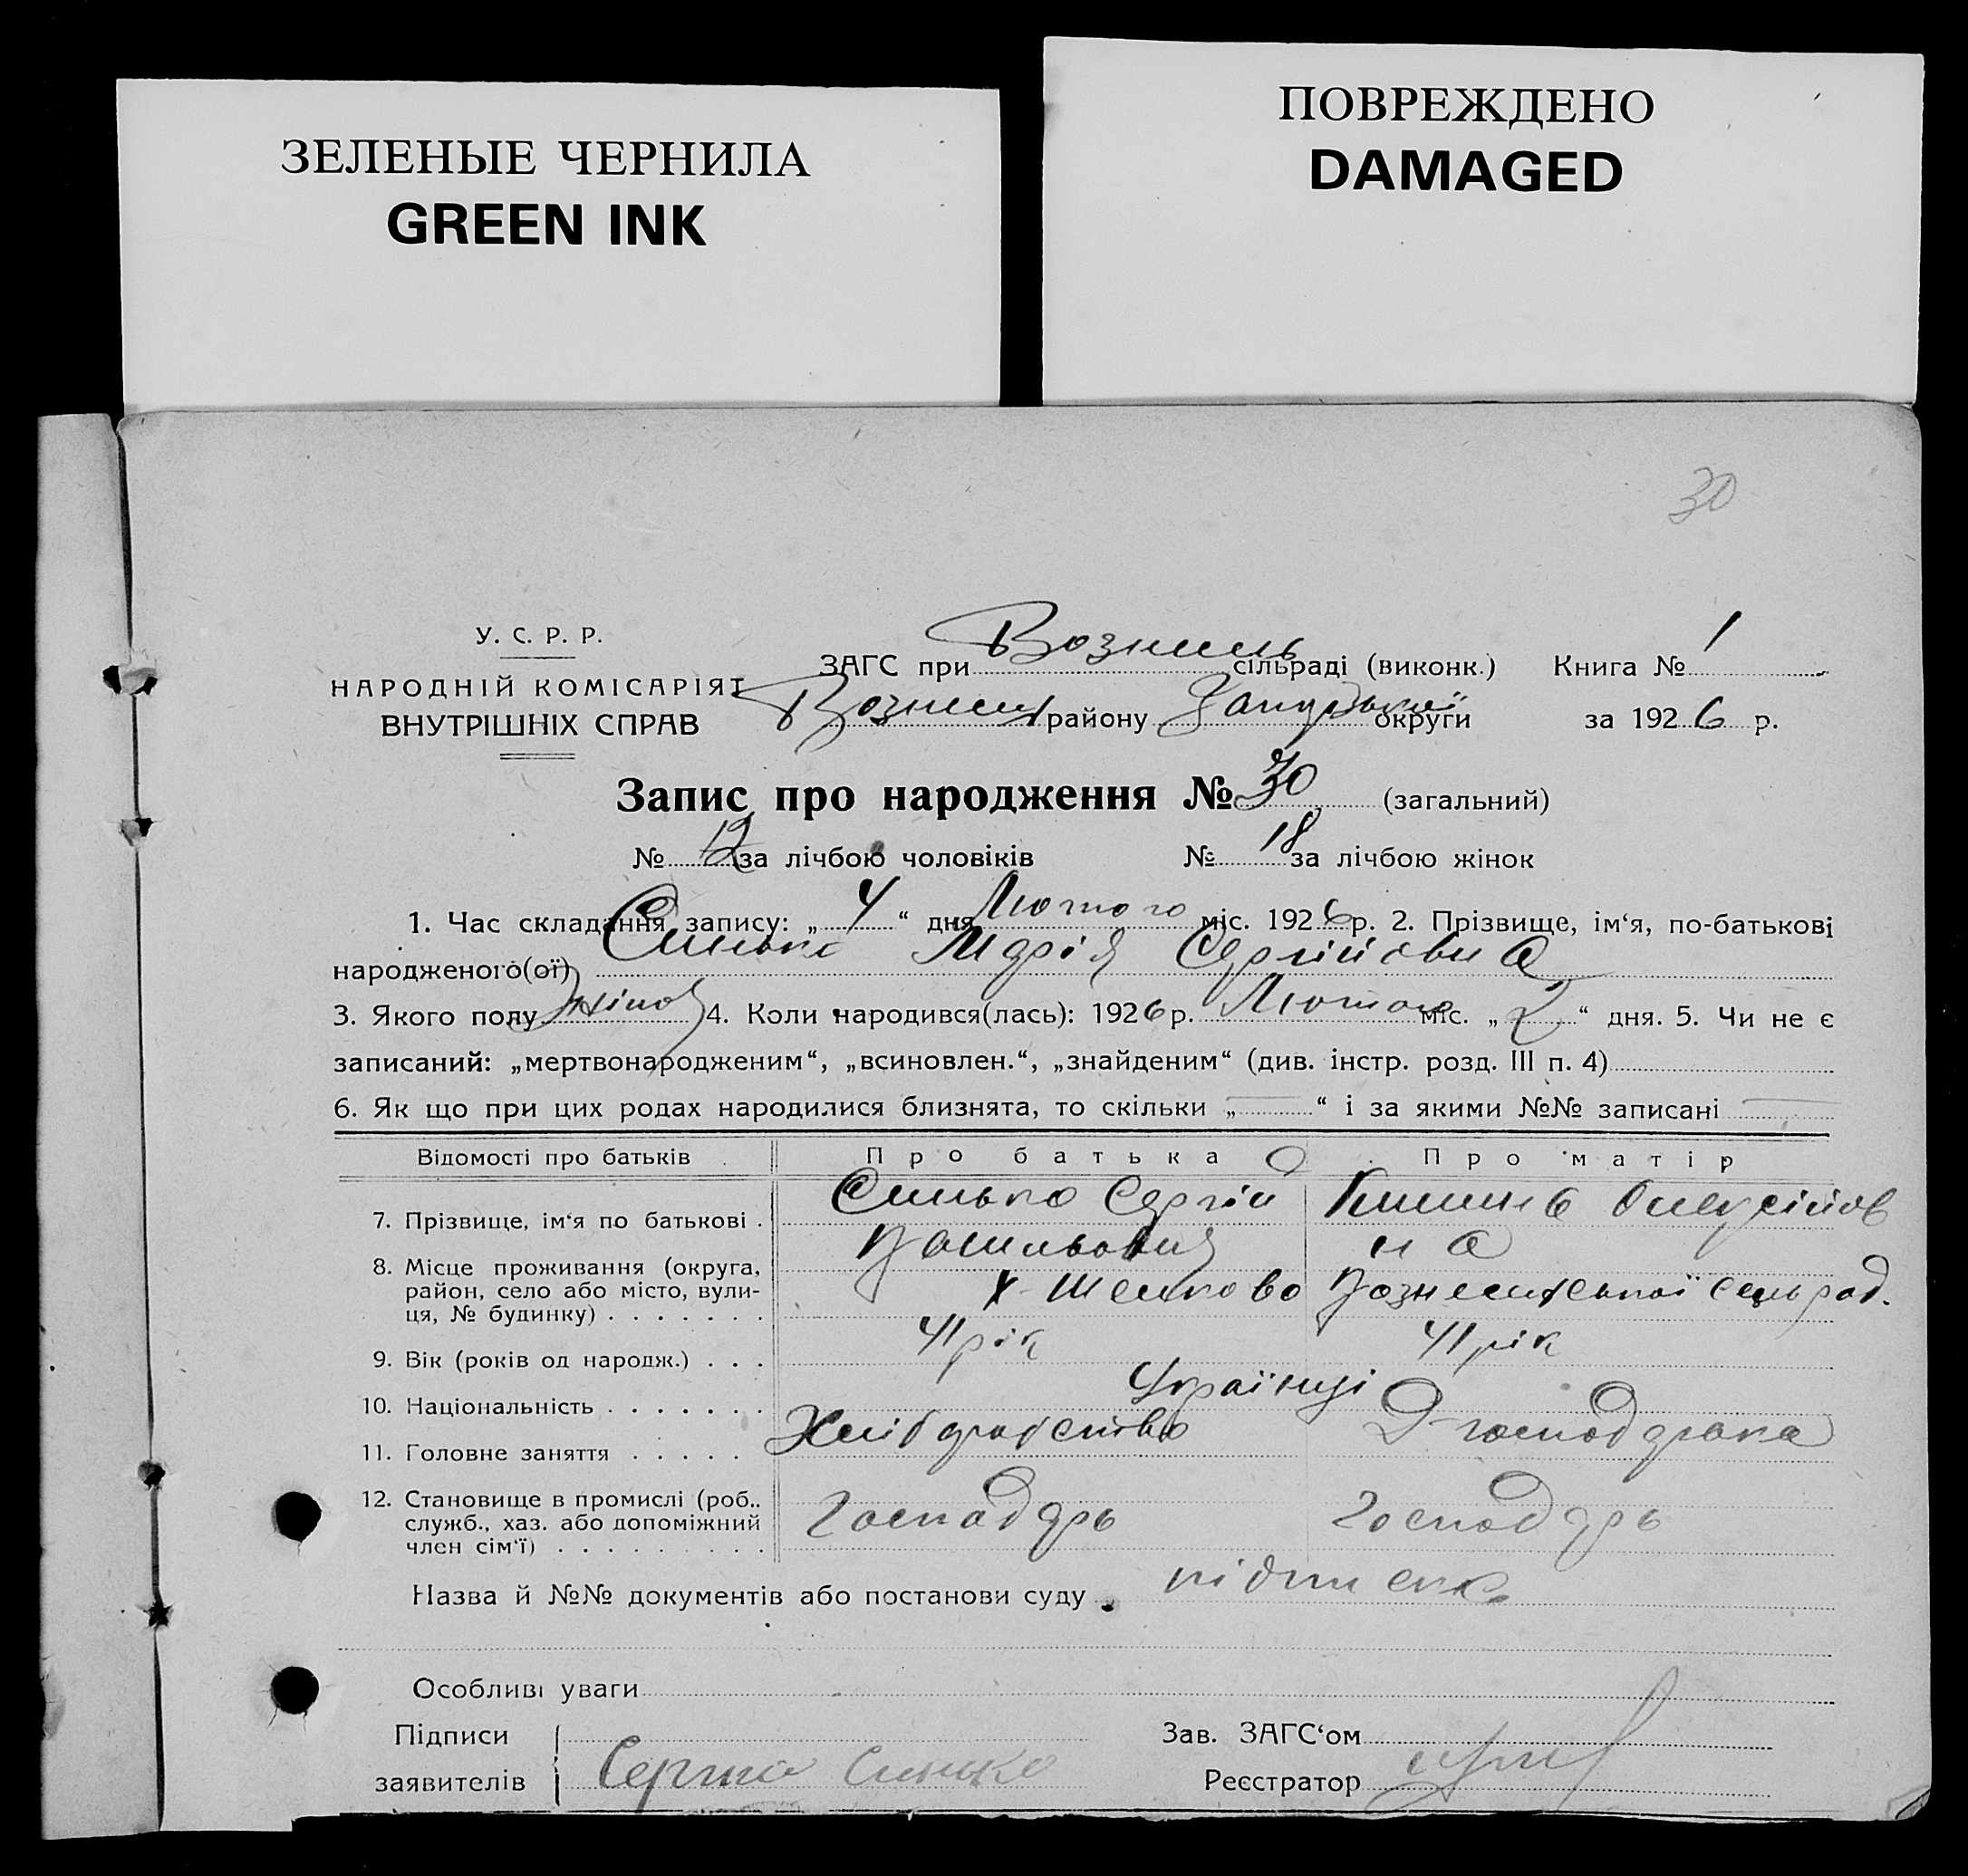 ЗЕЛЕНЫЕ ЧЕРНИЛА
GREEN INK
ПОВРЕЖДЕНО
DAMAGED
30
У. С. Р. Р.
НАРОДНІЙ КОМІСАРІЯТ
ВНУТРІШНІХ СПРАВ
ЗАГС при сільраді (виконк.) Книга № 1
району округи за 1926 р.
Запис про народження № 30 (загальний)
№ 12 за лічбою чоловіків № 18 за лічбою жінок
1. Час складання запису: „ 4 “ дня Лютого міс. 1926 р. 2. Прізвище, ім‘я, по-батькові
народженого(ої) Синько Марія Сергіївна
3. Якого полу 4. Коли народився(лась): 1926 р. Лютого міс. „ 2 “ дня. 5. Чи не є
записаний: „мертвонародженим“, „всиновлен.“, „знайденим“ (див. інстр. розд. III п. 4)
6. Як що при цих родах народилися близнята, то скільки „ — “ і за якими №№ записані —
Відомості про батьків Про батька Про матір
7. Прізвище, ім‘я по батькові . Синько Сергій
8. Місце проживання (округа,
район, село або місто, вули-
ця, № будинку) . . . . . . .
9. Вік (років од народж.) . . . 41 рік 41 рік
10. Національність . . . . . . . Українці
11. Головне заняття . . . . . Хліборобство
12. Становище в промислі (роб..
служб., хаз. або допоміжний
член сім‘ї) . . . . . . . . . Господарь Господарь
Назва й №№ документів або постанови суду . підписка
Особливі уваги
Підписи Зав. ЗАГС‘ом
заявителів Синько Реєстратор